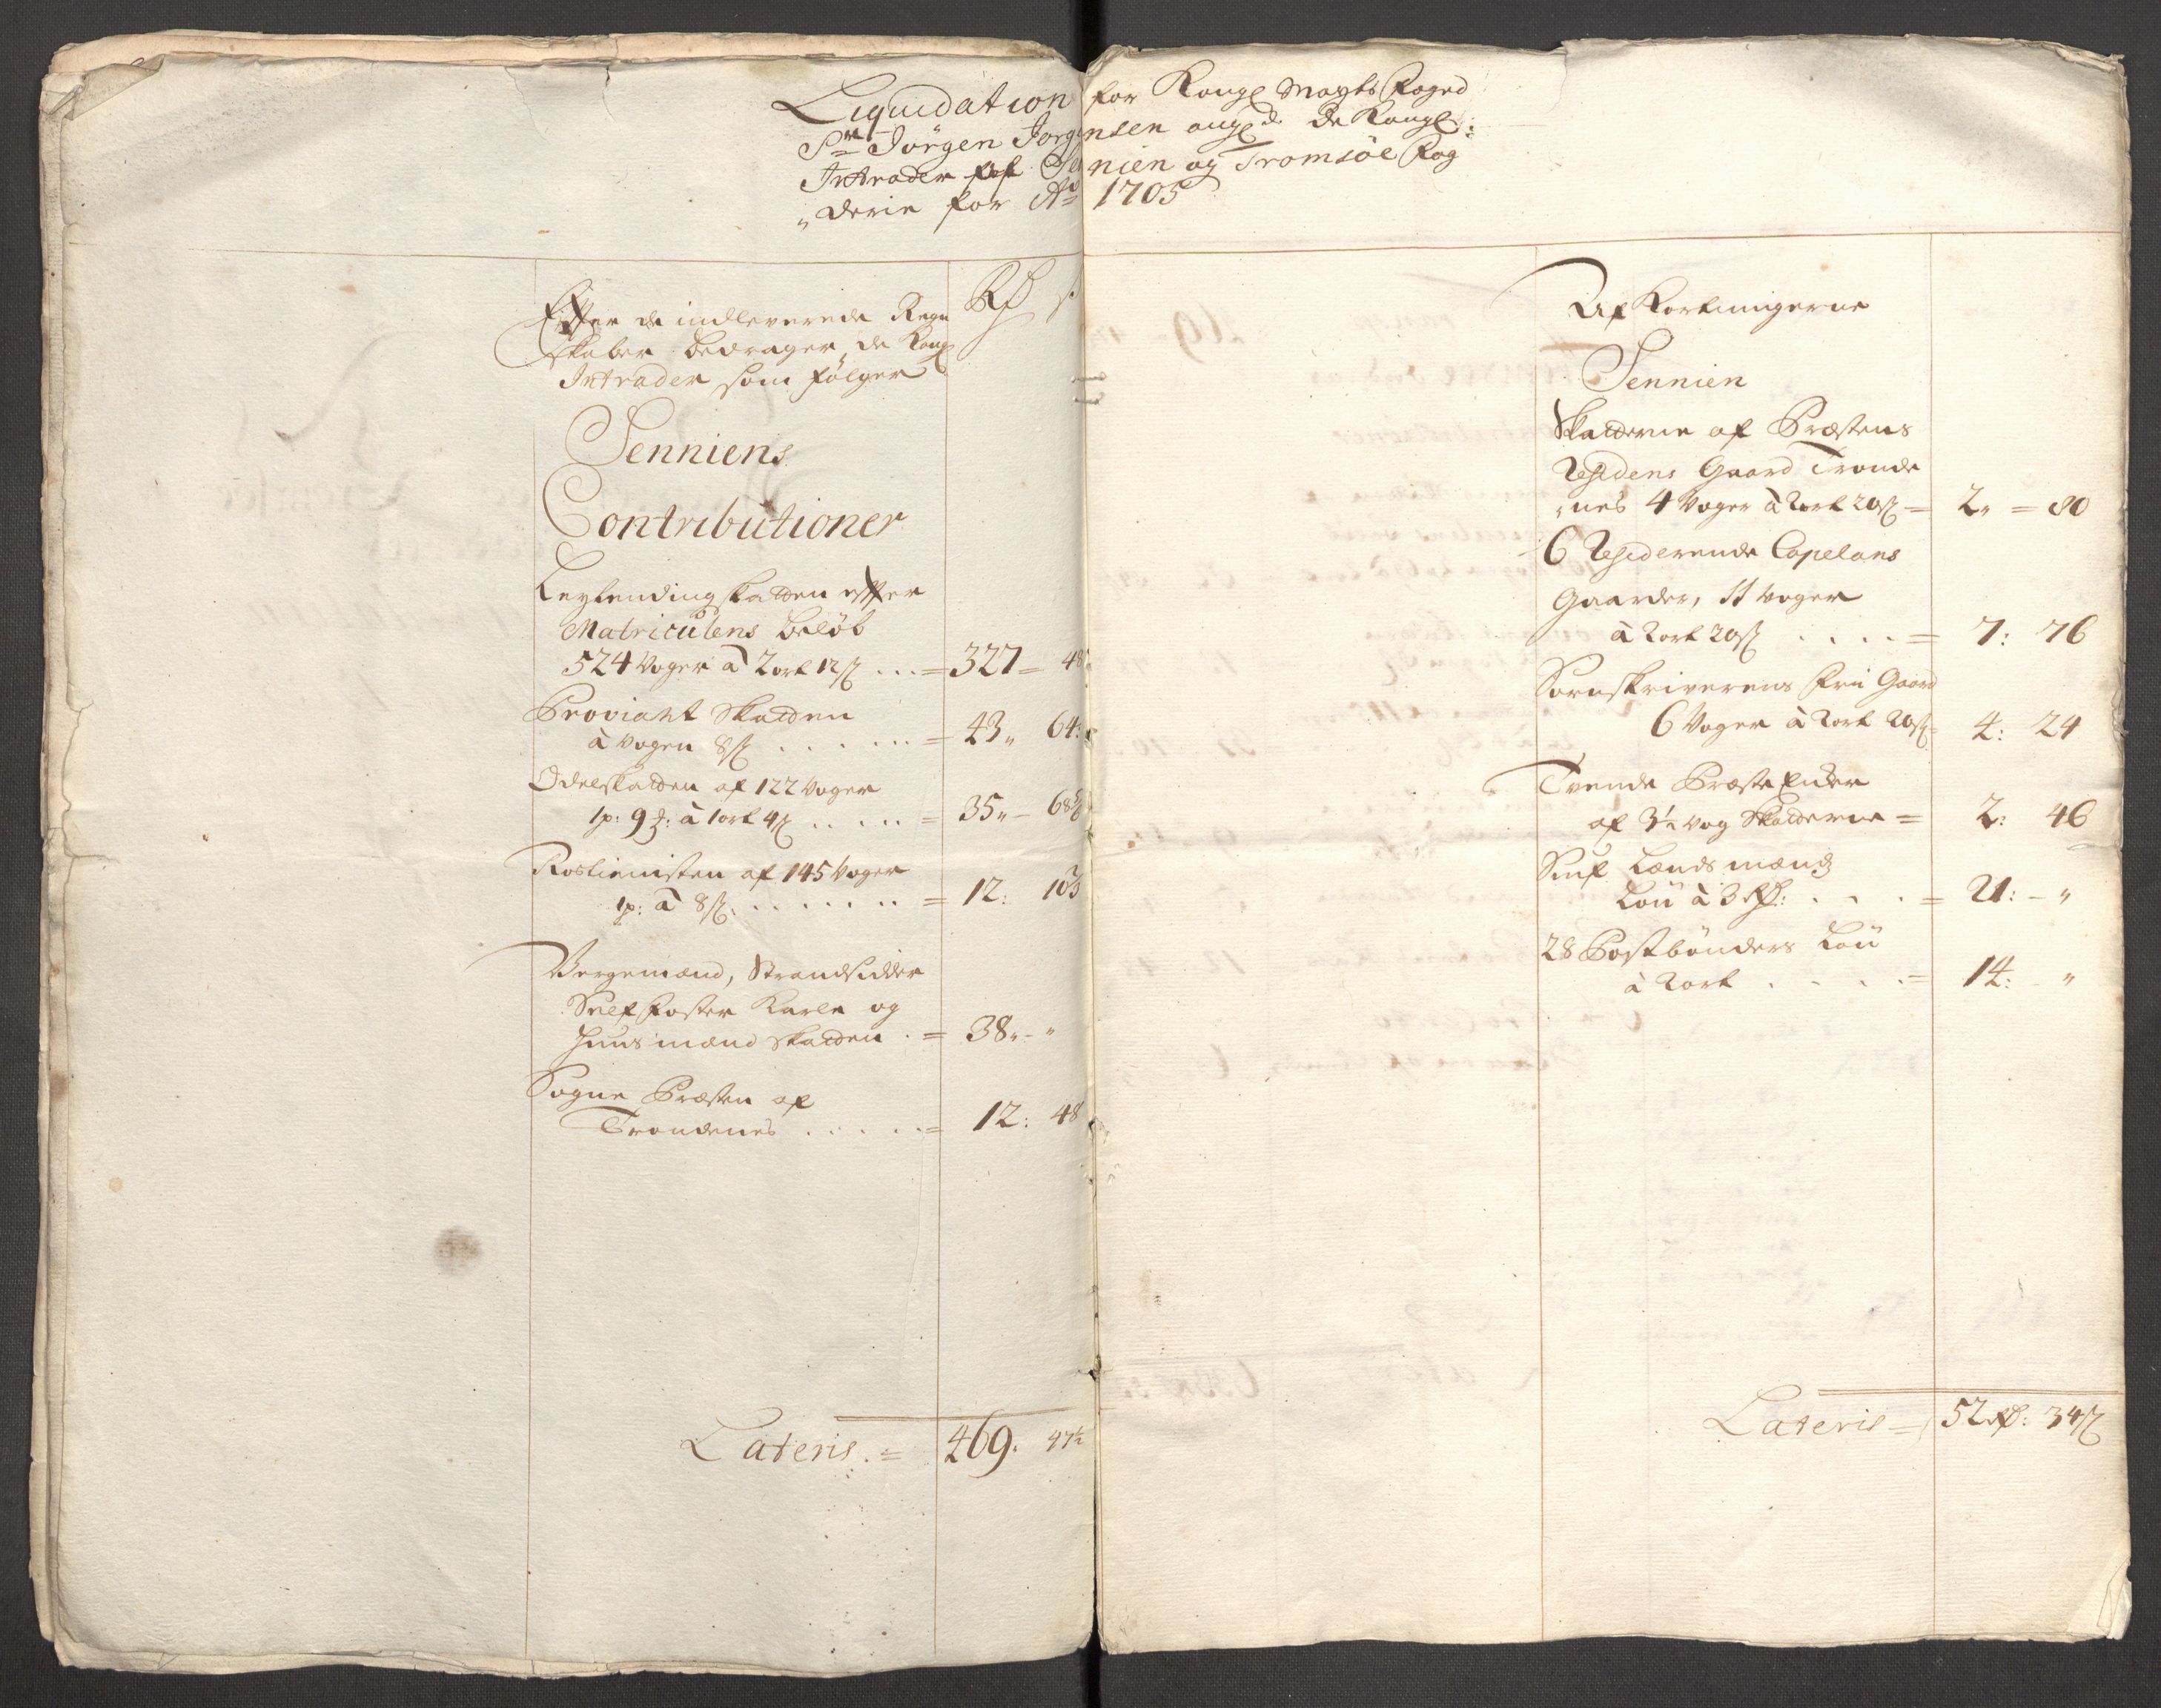 Liquidation for Kongl Maÿts Foged
Sr Jörgen Jörgensen angl. De Kongl:
Intrader af Sennien og Tromsöe Fog
„derie for Ao 1705
Rd s
Efter de indleverede Regn
skaber bedrager de Kongl
Intrader som fölger
Senniens
Contributioner
Leylending skatten efter
Matriculens belöb
524 Voger à 2 ort 12 s ... = 327 = 48
Proviant Skatten
à Vogen 8 s ...... = 43„ 64:
Odelskatten af 122 Voger
1p: 9 : à 1 ort 4 s ..... = 35„ –
Rostienisten af 145 Voger
1p: à 8 s ....... = 12:
Borgemænd, Strandsidder
Self foster Karle og
Huusmænd skatten . = 38„ – „
Sogne Præsten af
Trondenes ...... = 12: 48
Lateris. = 469. 47½
Af Kortningerne
Sennien
Skatterne af Præstens
Residens Gaard Tronde
„nes 4 Voger à 2 ort 20 s = 2„ = 80
6 Residerende Capelans
Gaarder, 11 Voger
à 2 ort 20 s .... = 7: 76
Sorenskriverens frii Gaard
6 Voger à 2 ort 20 s = 4: 24
Tvende Præste Enker
af 3½ vog Skatterne = 2: 46
Siuf Lænds mænds
Löu à 3 Rd: ... = 21: – „
28 Postbönders Löu
à 2 ort .... = 14: – „
Lateris = 52 Rd: 34 s